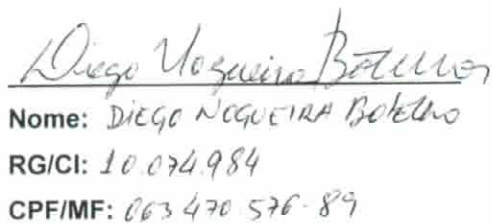 Diego Nogueira Botelho
Nome: DIEGO NOGUEIRA BOTELHO
RG/CI: 10.074.984
CPF/MF: 063 470 576-89